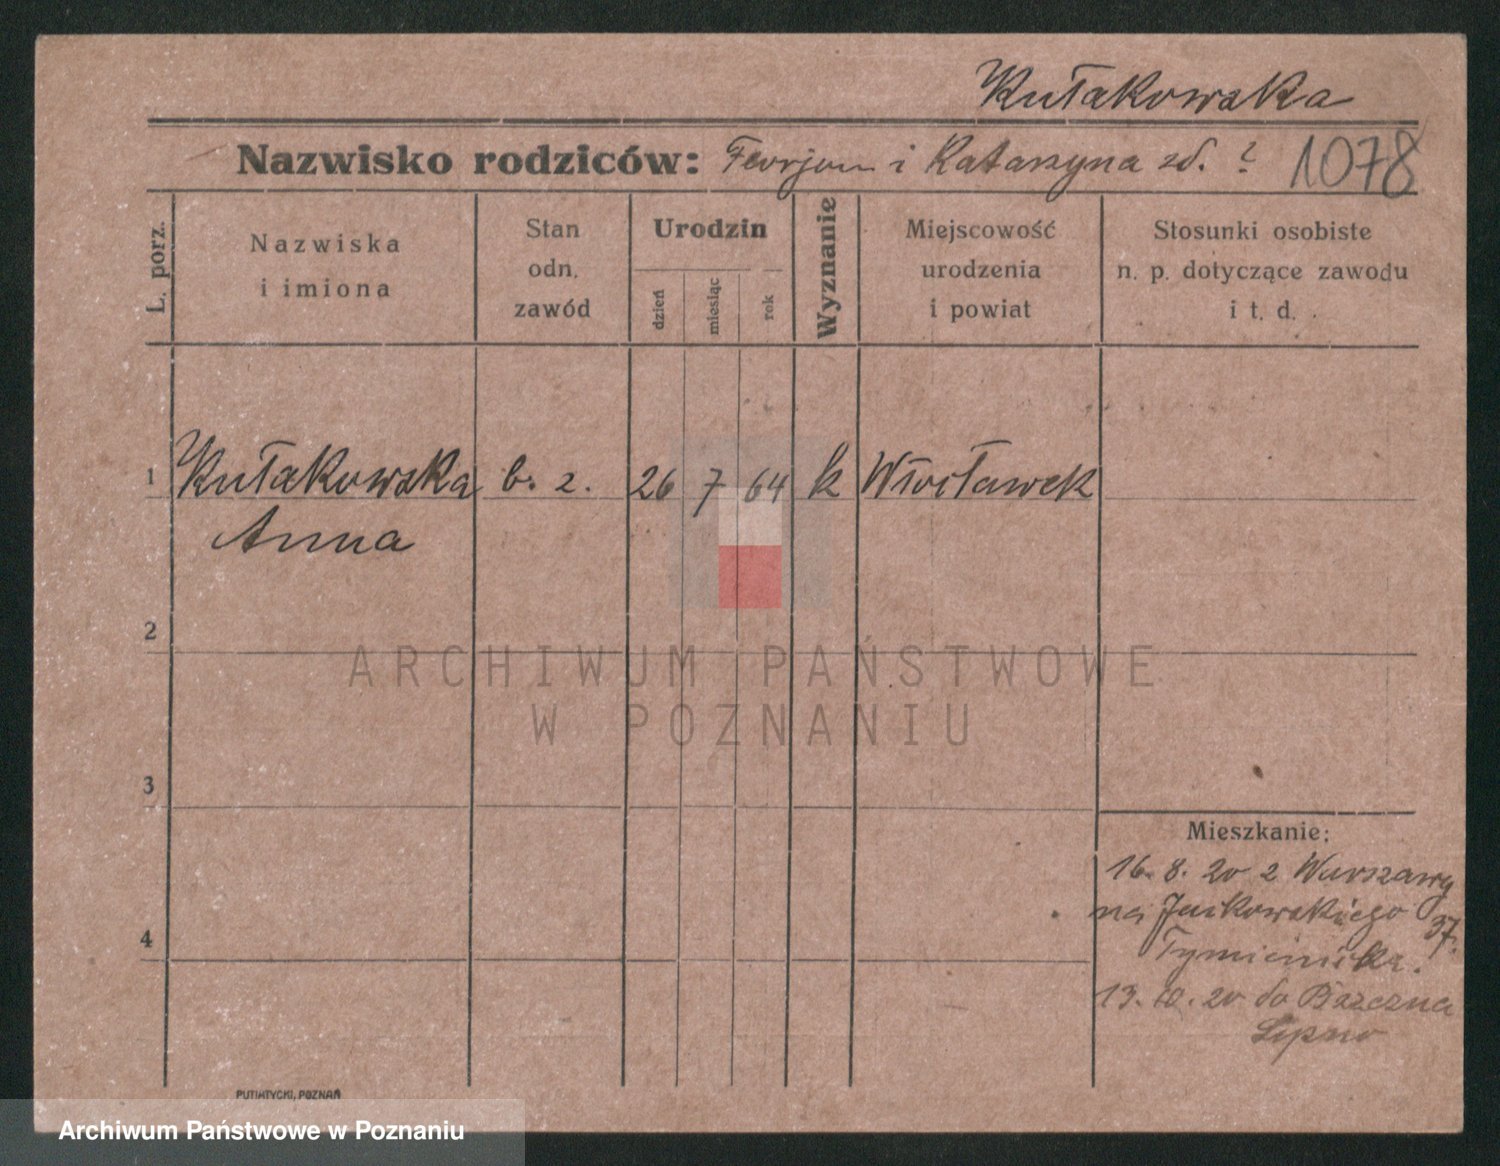 Kułakowska
Nazwisko rodziców: Florjan i Katarzyna zd. ? 1078
L. porz.
Nazwiska
i imiona
Stan
odn.
zawód
Urodzin
dzień
miesiąc
rok
Wyznanie
Miejscowość
urodzenia
i powiat
Stosunki osobiste
n. p. dotyczące zawodu
i t. d.
1 Kułakowska b. z. 26 7 64 k Włocławek
Anna
2
ARCHIWUM PAŃSTWOWE
W POZNANIU
3
Mieszkanie:
16. 8. 20 z Warszawy
na Jackowskiego 37.
4
13. 10. 20 do
Lipno
PUTIATYCKI, POZNAŃ
Archiwum Państwowe w Poznaniu